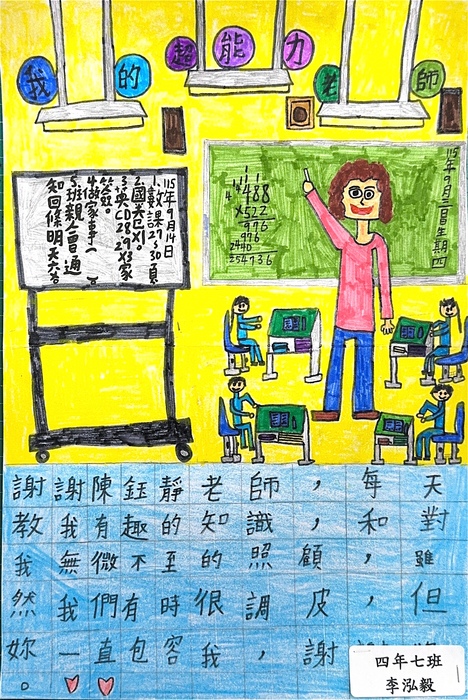 我的超能力老師
115年9月14日
1.數課27~30頁
3.英CD28、29X3家
4.做家事( )
5.班親會通
115年9月三日生期四
488
X522
976
976
2440
254736
謝謝陳鈺靜老師，每天
教我有趣的知識，和對
我無微不至的照顧，雖
然我們有時很調皮，但
妳一直包容我，謝
。
四年七班
李泓毅